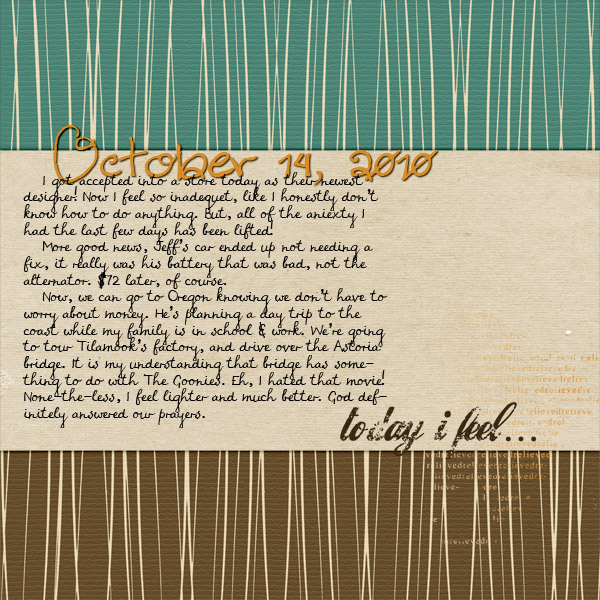 October 14, 2010
I got accepted into a store today as their newest
designer! Now I feel so inadequet, like I honestly don't
know how to do anything. But, all of the aniexty I
had the last few days has been lifted.
More good news, Jeff's car ended up not needing a
fix, it really was his battery that was bad, not the
alternator. $72 later, of course.
Now, we can go to Oregon knowing we don't have to
worry about money. He's planning a day trip to the
coast while my family is in school & work. We're going
to tour Tilamook's factory, and drive over the Astoria
bridge. It is my understanding that bridge has some-
thing to do with The Goonies. Eh, I hated that movie!
None-the-less, I feel lighter and much better. God def-
initely answered our prayers.
today i feel...